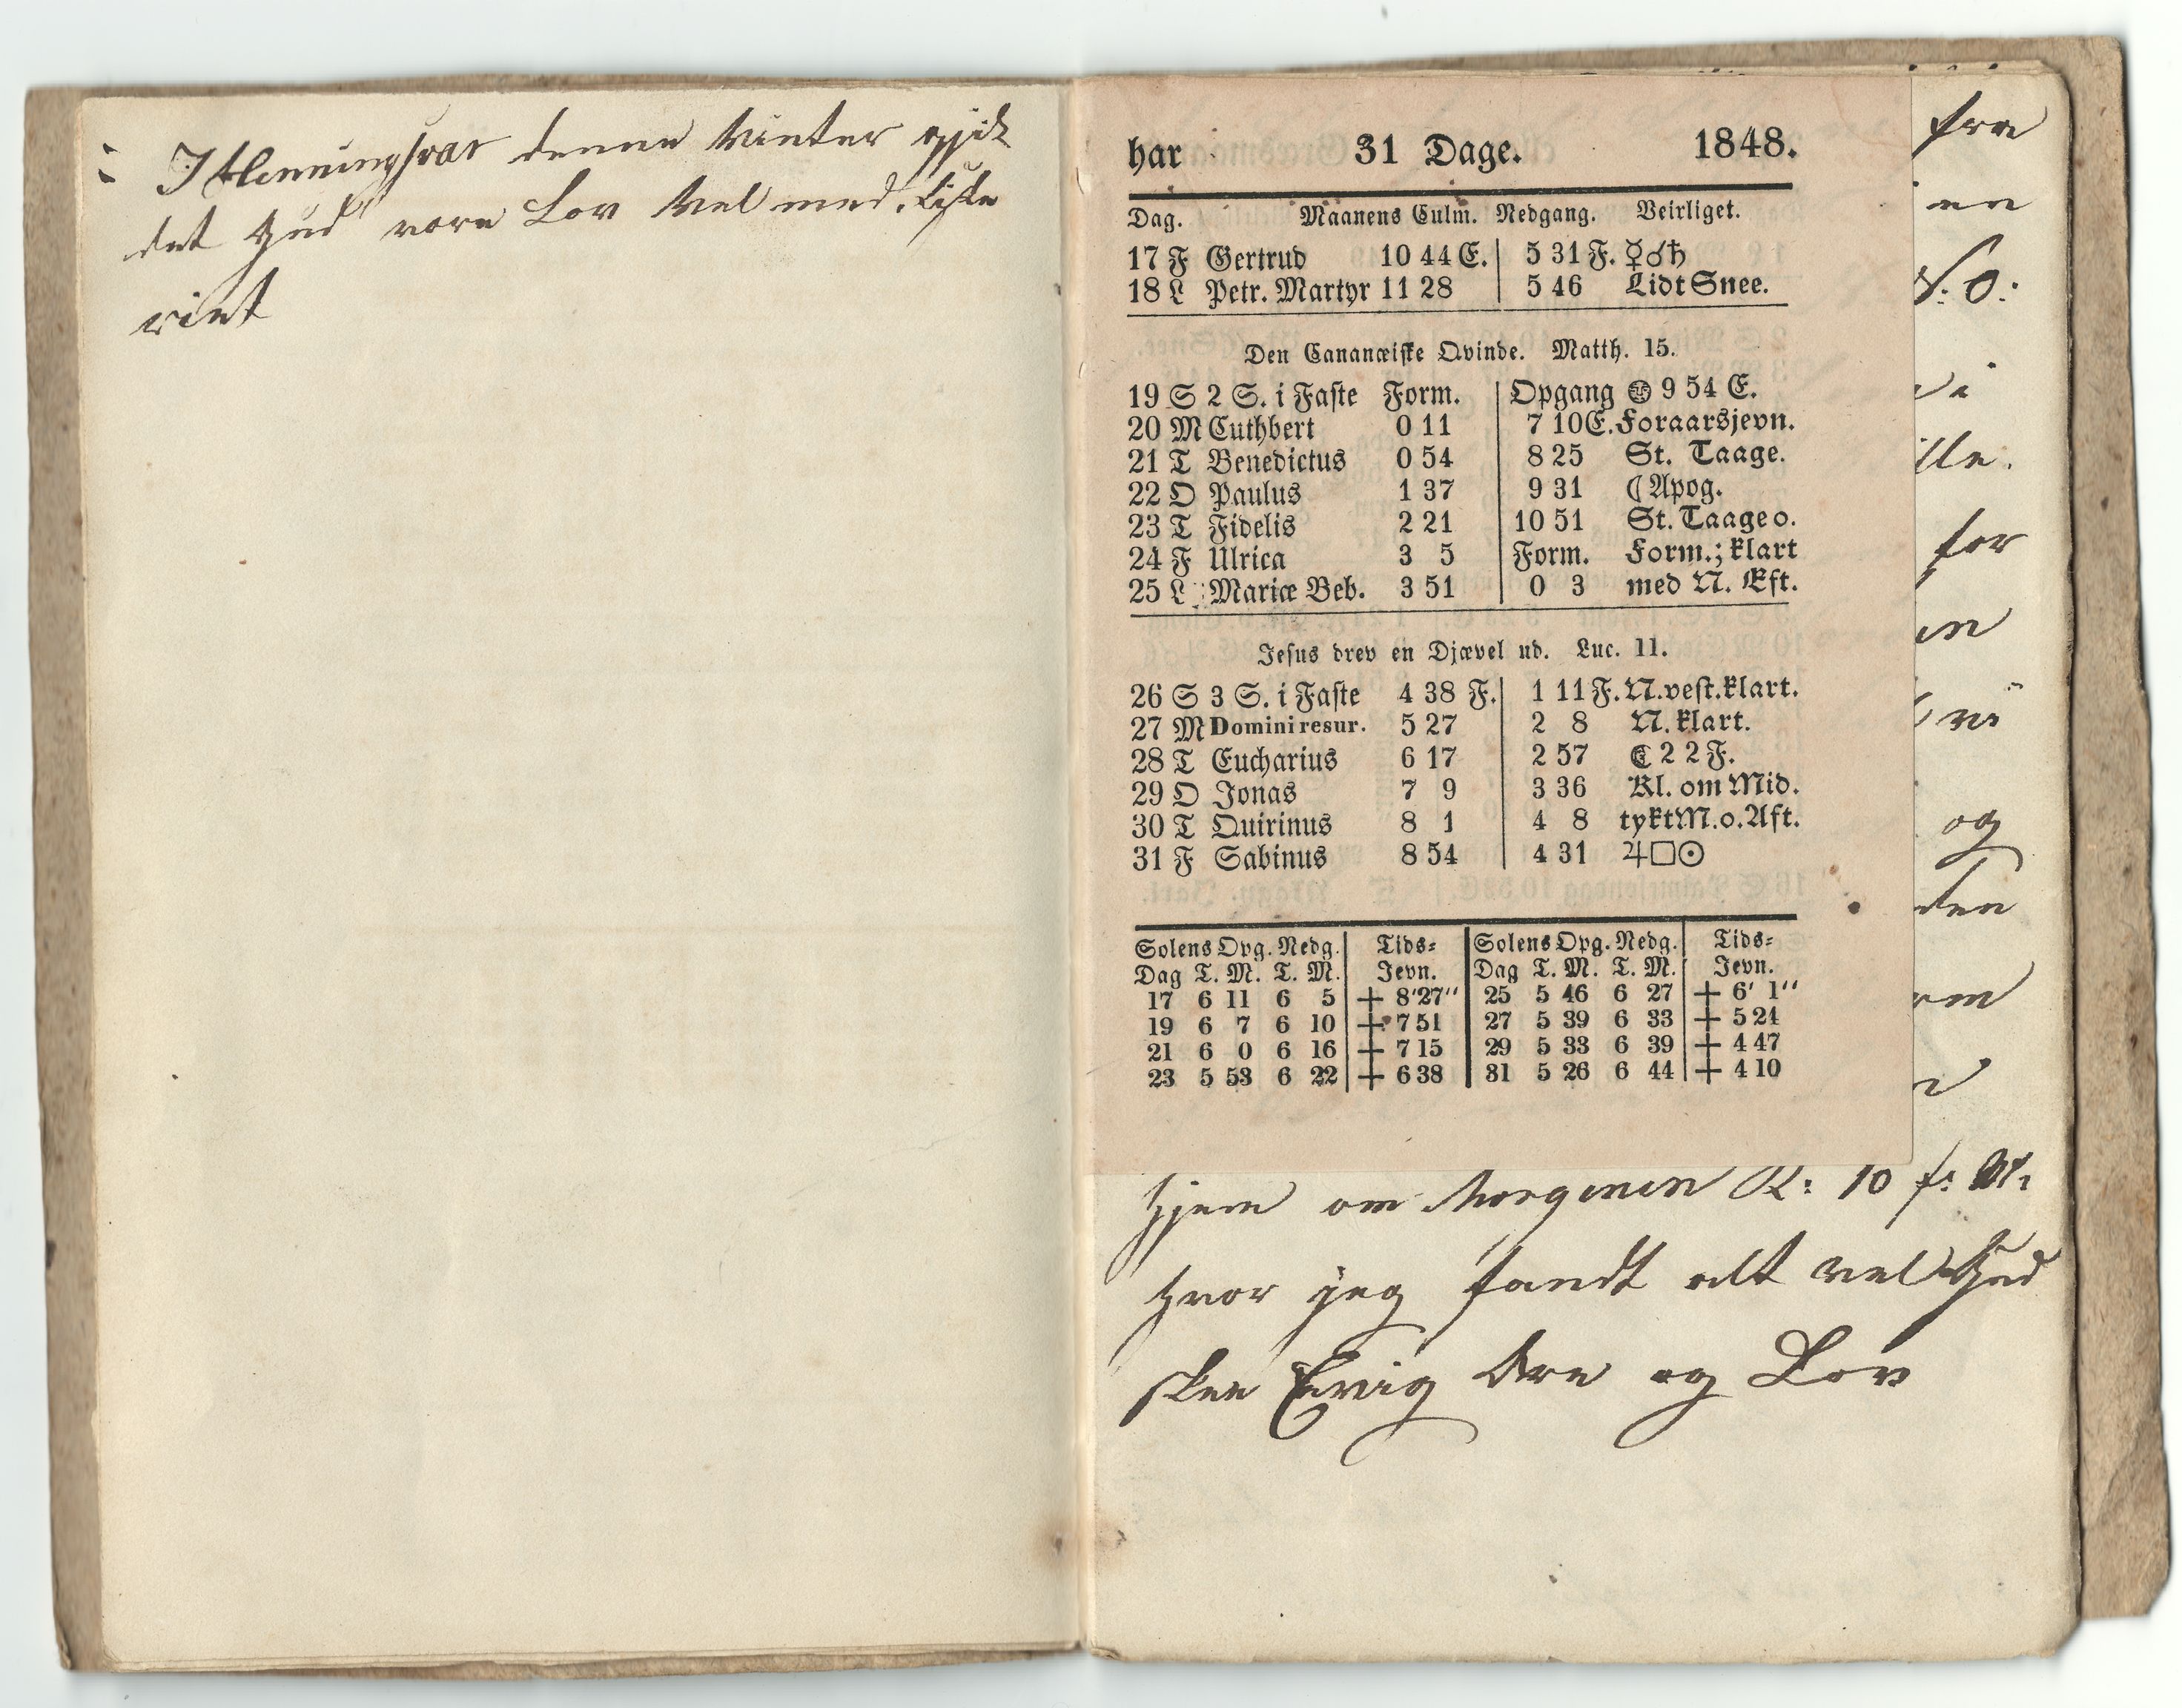 I Henningsvær denne Vinter gjik
det Gud være Lov Vel med. Fiske
riet
har 31 Dage. 1848.
Dag. Maanens Culm. Nedgang. Veirliget.
17 F Gertrud 10 44 E. 5 31 F. ☿☌♄
18 L Petr. Martyr 11 28 5 46 Lidt Snee.
Den Cananæiske Qvinde. Matth. 15.
19 S 2 S. i Faste Form. Opgang 🌕 9 54 E.
20 M Cuthbert 0 11 7 10 E. Foraarsjevn.
21 T Benedictus 0 54 8 25 St. Taage.
22 O Paulus 1 37 9 31 ☾ Apog.
23 T Fidelis 2 21 10 51 St. Taage o.
24 F Ulrica 3 5 Form. Form.; klart
25 L Mariæ Beb. 3 51 0 3 med N. Eft.
Jesus drev en Djævel ud. Luc. 11.
26 S 3 S. i Faste 4 38 F. 1 11 F. N.vest. klart.
27 M Domini resur. 5 27 2 8 N. klart.
28 T Eucharius 6 17 2 57 ☾ 2 2 F.
29 O Jonas 7 9 3 36 Kl. om Mid.
30 T Quirinus 8 1 4 8 tykt M. o. Aft.
31 F Sabinus 8 54 4 31 ♃□☉
Solens Opg. Nedg. Tids= Solens Opg. Nedg. Tids=
Dag T. M. T. M. Jevn. Dag T. M. T. M. Jevn.
17 6 11 6 5 + 8'27" 25 5 46 6 27 + 6' 1"
19 6 7 6 10 + 7 51 27 5 39 6 33 + 5 24
21 6 0 6 16 + 7 15 29 5 33 6 39 + 4 47
23 5 53 6 22 + 6 38 31 5 26 6 44 + 4 10
fra
en
N. O:
vi
ille.
for
en
vi
og
den
om
hjem om Morgenen K: 10 f: M:
hvor jeg fandt alt vel Gud
skee Evig Ære og Lov